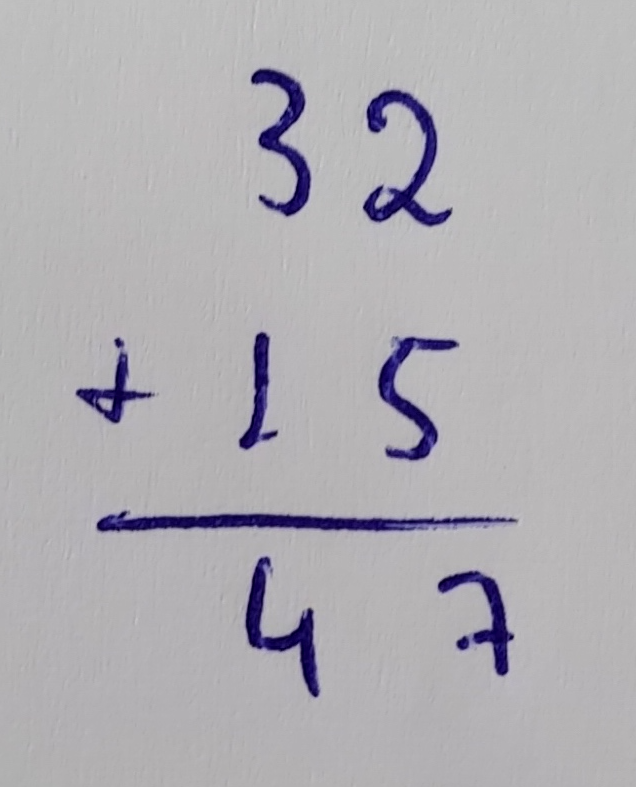 32
+ 15
47